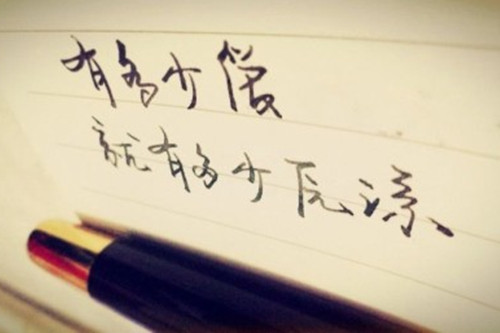 有多少
就有多少原谅